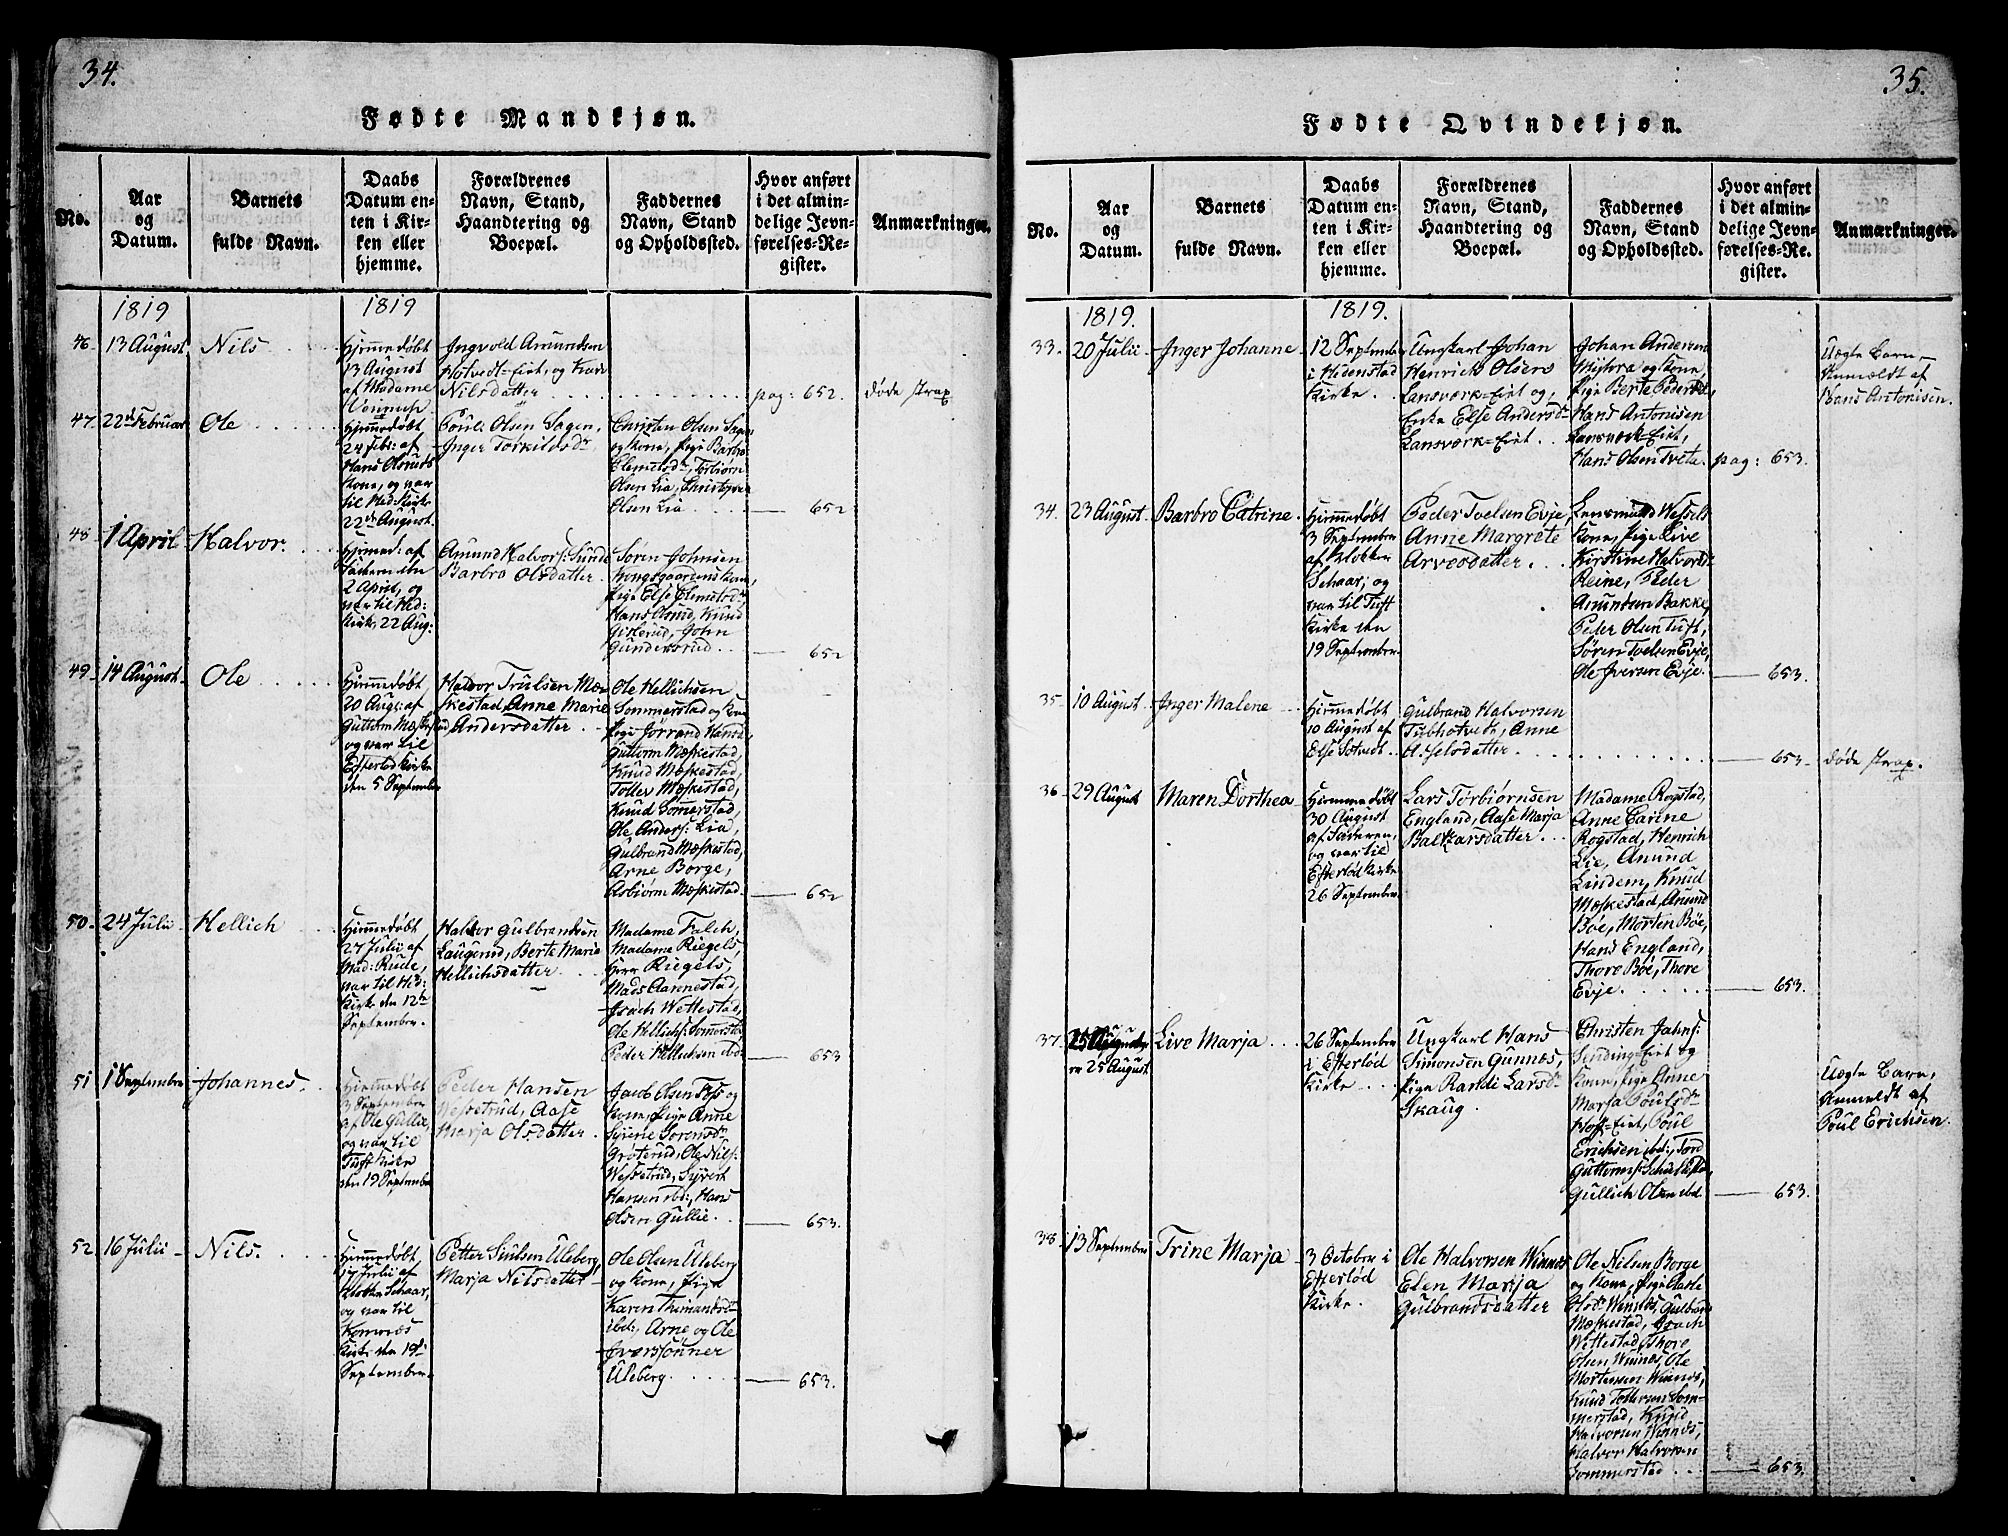 34.
Fødte Mandkjøn.
No.
Aar
og
Datum.
Barnets
fulde Navn.
Daabs
Datum en-
ten i Kir-
ken eller
hjemme.
Forældrenes
Navn, Stand,
Haandtering og
Boepæl.
Faddernes
Navn, Stand
og Opholdssted.
Hvor anført
i det almin-
delige Jevn-
førelses-Re-
gister.
Anmærkninger.
1819
1819
46.
13 August
Nils
Hjemmedøbt
13 August
af Madame
Ingvold Amundsen
Hotvedt-Eiet, og Kari
Nilsdatter
pag: 652.
døde strax
47.
22de Februar
Ole
Hjemmedøbt
24 Febr: af
Hans Olsruds
Kone, og var
til Hed: Kirke
22de August.
Poul Olsen Sagen,
Inger Torkildsdr
Christen Olsen Sagen
og Kone, Pige Barbro
Clemetsdr, Torbiørn
Olsen Lia, Christopher
Olsen Lia
652
48
1 April
Halvor.
Hjemmed: af
Faderen den
2 April, og
var til Hed:
Kirke, 22 Aug:
Amund Halvors: Sunde
Barbro Olsdatter.
Søren Johnsen
Kongsgaardens Kone,
Pige Else Clemetsdr
Hans Olsrud, Knud
Gislerud, John
Gundersrud
652
49
14 August
Ole
Hjemmedøbt
20 Aug: af
Guttorm Mæskestad
og var til
Eftelød Kirke
den 5 September
Halvor Trulsen Mæ-
skestad, Anne Marie
Andersdatter
Ole Hellichsen
Sommerstad og Kone
Pige Jørrand Hansd:
Guttorm Mæskestad,
Knud Mæskestad,
Tollev Mæskestad,
Knud Somerstad,
Ole Anders: Lia,
Gulbrand Mæskestad,
Arne Borge,
Asbiørn Mæskestad
652
50.
24 Julii
Hellich
Hjemmedøbt
27 Julii af
Mad: Rude,
var til Hed:
Kirke den 12te
September.
Halvor Gulbrandsen
Laugerud, Berte Marie
Hellichsdatter
Madame Falch,
Madame Riegels,
Herr Riegels,
Mads Aannestad,
Isach Wettestad,
Ole Hellichs: Somerstad
Peder Hellichsen ibd
653
51
1 September
Johannes.
Hjemmedøbt
3 September
af Ole Gullie,
og var til
Tuft Kirke
den 19 September
Peder Hansen
Wessetrud, Aase
Marja Olsdatter.
Jacob Olsen Foss og
Kone, Pige Anne
Sørine Sørensdr
Grøterud, Ole Nils:
Wessetrud, Syvert
Hansen ibd:, Hans
Olsen Gullie.
653.
52
16 Julii
Nils.
Hjemmedøbt
17 Julii af
Klokker Schaar,
og var til
Komnæs
Kirke den 19de
September.
Petter Siulsen Uleberg,
Marja Nilsdatter
Ole Olsen Uleberg
og Kone, Pige
Karen Thimandsdr
ibd:, Arne og Ole
Iverssønner
Uleberg.
653.
35.
Fødte Qvindekjøn.
No.
Aar
og
Datum.
Barnets
fulde Navn.
Daabs
Datum en-
ten i Kir-
ken eller
hjemme.
Forældrenes
Navn, Stand,
Haandtering og
Boepæl.
Faddernes
Navn, Stand
og Opholdssted.
Hvor anført
i det almin-
delige Jevn-
førelses-Re-
gister.
Anmærkninger.
1819.
1819.
33.
20 Julii
Inger Johanne
12 September
i Hedenstad
Kirke.
Ungkarl Johan
Henrich Olsen
Lansværk-Eiet og
Enke Else Andersdr
Lansværk-Eiet
Johan Andersen
og Kone,
Pige Berte Pedersdr,
Hans Antonisen
Lansværk-Eiet,
Hans Olsen Tveta.
pag: 653.
Uægte Barn,
Anmeldt af
Hans Antonisen.
34.
23 August
Barbro Catrine.
Hjemmedøbt
3 September
af Klokker
Schaar; og
var til Tuft
Kirke den
19 September
Peder Tvelsen Evje,
Anne Margrete
Arvesdatter.
Lensmand Wessels
Kone, Pige Live
Kirstine Halvorsd:
Reine, Peder
Amundsen Bakke,
Peder Olsen Tuft,
Søren Tvelsen Evje,
Ole Iversen Evje.
653.
35
10 August
Inger Malene
Hjemmedøbt
10 August af
Else Sotvedt
Gulbrand Halvorsen
Tubhotvedt, Anne
Axelsdatter
653.
døde strax.
36
29 August
Maren Dorthea
Hjemmedøbt
30 August
af Faderen,
og var til
Efteløød Kirke
26 September
Lars Torbiørnsen
England, Aase Marja
Baltzarsdatter
Madame Rogstad,
Anne Carine
Rogstad, Henrich
Lie, Amund
Lindem, Knud
Mæskestad, Amund
Bøe, Morten Bøe,
Hans England,
Thore Bøe, Thore
Evje.
653.
37.
25 August
Live Marja
26 September
i Efteløød
Kirke
Ungkarl Hans
Simonsen Gunnæs,
Pige Randi Larsdr
Skaug.
Christen Jahns:
Sinding-Eiet og
Kone, Pige Anne
Marja Poulsdr
Hoff-Eiet, Poul
Erichsen ibd:, Tord
Gullich Olsen ibd
653.
Uægte Barn,
Anmeldt af
Poul Erichsen.
38.
13 September
Trine Marja
3 October i
Efteløød
Kirke.
Ole Halvorsen Winnæs
Elen Marja
Gulbrandsdatter
Ole Nilsen Borge
og Kone, Pige Aasle
Olsdr Winnæs, Gulbrand
Mæskestad, Isach
Wettestad, Thore
Olsen Winnæs, Ole
Mortensen Winnæs,
Knud Tollefsen Som-
merstad, Knud
Halvorsen Winnæs,
Halvor Halvorsen
Sommerstad
653.